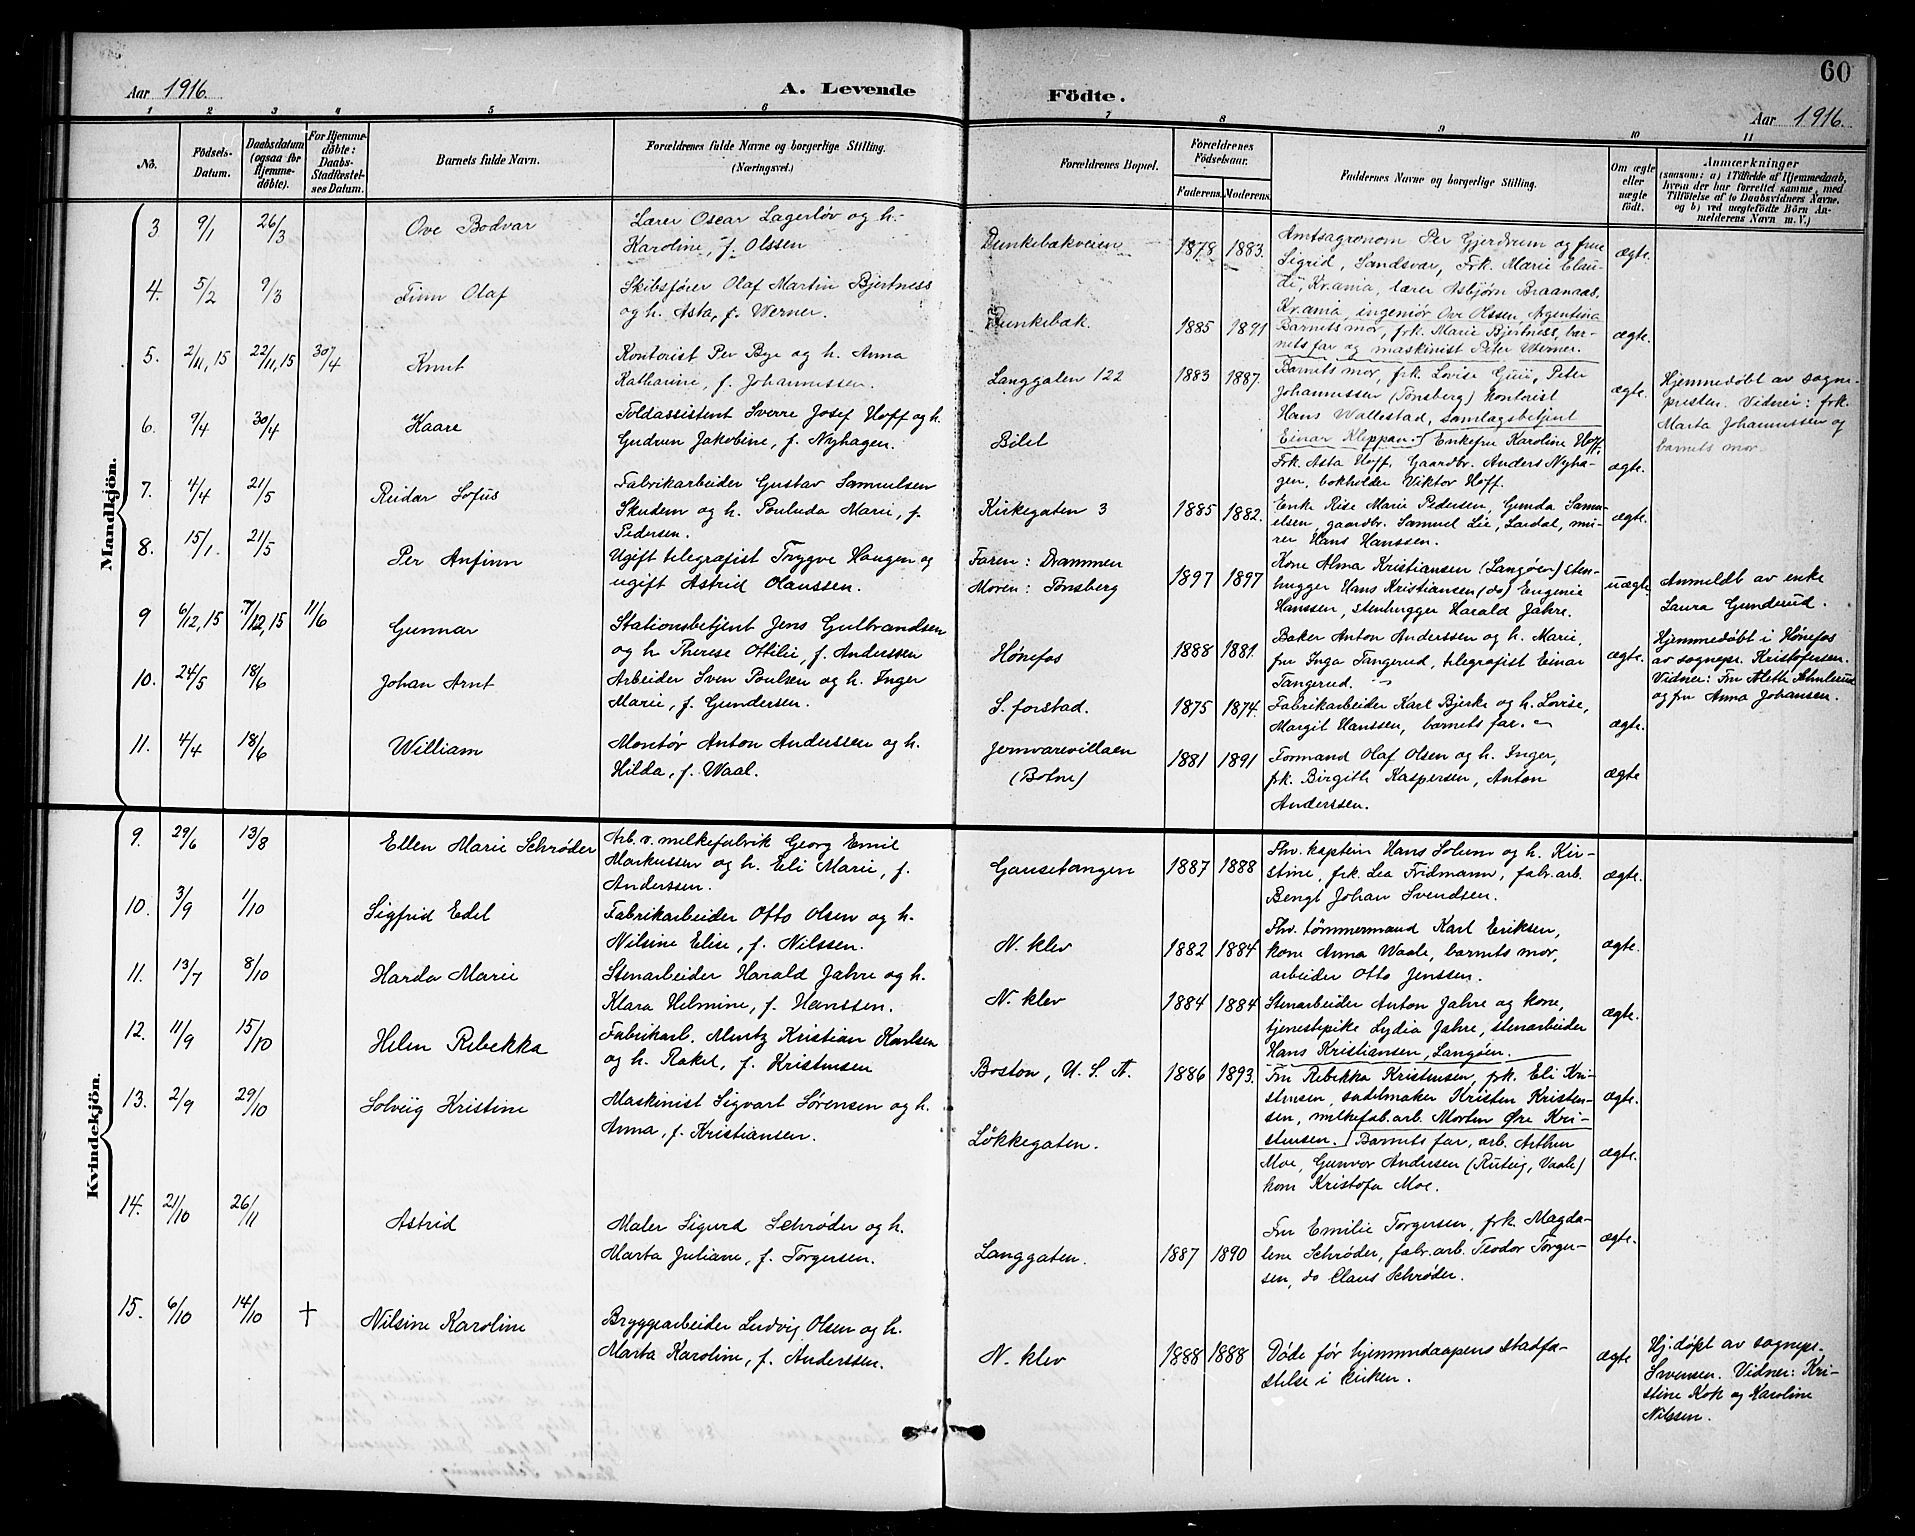 60
Aar 1916.
A. Levende
Födte.
Aar 1916.
1 2 3 4 5 6 7 8 9 10 11
No.
Födsels-
Datum.
Daabsdatum
(ogsaa for
Hjemme-
döbte).
For Hjemme-
döbte:
Daabs-
Stadfæstel-
ses Datum.
Barnets fulde Navn.
Forældrenes fulde Navne og borgerlige Stilling.
(Næringsvei.)
Forældrenes Bopæl.
Forældrenes
Födselsaar.
Faderens.
Moderens.
Faddernes Navne og borgerlige Stilling.
Om ægte
eller
uægte
födt.
Anmærkninger
(saasom: a) i Tilfælde af Hjemmedaab,
hvem der har forrettet samme, med
Tilföielse af to Daabsvidners Navne.
og b) ved uægtefödte Börn An-
melderens Navn m. V.)
Mandkjön.
3 9/1 26/3
Ove Bodvar
Lærer Oscar Lagerløv og h.
Karoline, f. Olssen
Dunkebækveien
1878 1883.
Amtsagronom Per Gjerdrum og frue
Sigrid, Sandsvær, Frk. Marie Clau-
di, Kr.ania, lærer Asbjørn Braanaas,
Kr.ania, ingeniør Ove Olssen, Argentina
ægte.
4. 5/2 9/3
Finn Olaf
Skibsfører Olaf Martin Bjertness
og h. Asta, f. Werner.
Dunkebæk.
1885 1891
Barnets mor, frk. Marie Bjertness, bar-
nets far og maskinist Peter Werner.
ægte.
5. 2/11, 15 22/11, 15 30/4
Knut
Kontorist Per Bye og h. Anna
Katharine, f. Johannessen.
Langgaten 122
1883 1887.
Barnets mor, frk. Lovise Gui, Peter
Johannessen (Tönsberg) kontorist
Hans Wallestad, samlagsbetjent
Einar Kleppan.
ægte.
Hjemmedøbt av sogne-
presten. Vidner: frk.
Marta Johannessen og
barnets mor.
6. 9/4 30/4
Kaare
Toldassistent Sverre Josef Hoff og h.
Gudrun Jakobine, f. Nyhagen.
Bilet
Enkefru Karoline Hoff,
Frk. Asta Hoff, Gaardbr. Anders Nyha-
gen, bokholder Viktor Hoff.
ægte.
7. 4/4 21/5
Reidar Sofus
Fabrikarbeider Gustav Samuelsen
Skudem og h. Pouluda Marie, f.
Pedersen.
Kirkegaten 3
1885 1882.
Enke Rise Marie Pedersen, Gunda Samu-
elsen, gaardbr. Samuel Lie, Lardal, mu-
rer Hans Hanssen.
ægte.
8. 15/1. 21/5
Per Anfinn
Ugift telegrafist Trygve Haugen og
ugift Astrid Olaussen.
Faren: Drammen
Moren: Tönsberg
1897 1897
Kone Alma Kristiansen (Langøen) sten-
hugger Hans Kristiansen (do) Eugenie
Hanssen, stenhugger Harald Jahre.
uægte
Anmeldt av enke
Laura Gunderud.
9 6/12, 15 7/12, 15 11/6
Gunnar
Stationsbetjent Jens Gulbrandsen
og h. Therese Ottilie, f. Anderssen
Hønefos
1888 1881.
Baker Anton Anderssen og h. Marie,
fru Inga Tangerud, telegrafist Einar
Tangerud.
ægte.
Hjemmedøbt i Hønefos
av sognepr. Kristofersen.
Vidner: Fru Aleth
og fru Anna Johansen.
10. 24/5 18/6
Johan Arnt
Arbeider Sven Poulsen og h. Inger
Marie, f. Gundersen.
S. forstad.
1875 1874.
Fabrikarbeider Karl Bjerke og h. Lovise,
Margit Hanssen, barnets far.
ægte.
11. 4/4 18/6
William
Montør Anton Anderssen og h.
Hilda, f. Waal.
Jernvarevillaen
(Botne)
1881 1891
Formand Olaf Olsen og h. Inger,
frk. Birgith Kaspersen, Anton
Anderssen.
ægte
Kvindekjön.
9. 29/6 13/8
Ellen Marie Schrøder
Arb. v. melkefabrik Georg Emil
Markussen og h. Eli Marie, f.
Anderssen.
Gausetangen
1887 1888
Fhv. kaptein Hans Solum og h. Kir-
stine, frk. Lea Fridmann, fabr.arb.
Bengt Johan Svendsen.
ægte.
10. 3/9 1/10
Sigfrid Edel
Fabrikarbeider Otto Olsen og h.
Nilsine Elise, f. Nilssen.
N. klev
1882 1884
Fhv. tömmermand Karl Eriksen,
kone Anna Waale, barnets mor,
arbeider Otto Jenssen.
ægte.
11. 13/7 8/10
Harda Marie
Stenarbeider Harald Jahre og h.
Klara Helmine, f. Hanssen.
N. klev
1884 1884
Stenarbeider Anton Jahre og kone,
tjenestepike Lydia Jahre, stenarbeider
Hans Kristiansen, Langøen.
ægte.
12. 11/9 15/10
Helen Rebekka
Fabrikarb. Mentz Kristian Karlsen
og h. Rakel, f. Kristensen
Boston, U. S. A.
1886 1893.
Fru Rebekka Kristensen, frk. Eli Kri-
stensen, sadelmaker Kristen Kristen-
sen, melkefab.arb. Morten Øre Kri-
stensen.
ægte.
13. 2/9 29/10
Solveig Kristine
Maskinist Sigvart Sørensen og h.
Anna, f. Kristiansen.
Løkkegaten.
Barnets far, arb. Arthur
Moe, Gunvor Andersen (Rutvig, Vaale)
kone Kristofa Moe.
ægte.
14. 21/10 26/11
Astrid
Maler Sigurd Schrøder og h.
Marta Juliane, f. Torgersen.
Langgaten.
1887 1890
Fru Emilie Torgersen, frk. Magda-
lene Schrøder, fabr.arb. Teodor Torger-
sen, do Claus Schrøder.
ægte.
15. 6/10 14/10 †
Nilsine Karoline
Bryggearbeider Ludvig Olsen og h.
Marta Karoline, f. Anderssen.
N. klev
1888 1888
Døde før hjemmedaapens stadfæ-
stelse i kirken.
ægte
Hj.døpt av sognepr.
Svensen. Vidner: Kri-
stine Kok og Karoline
Nilssen.